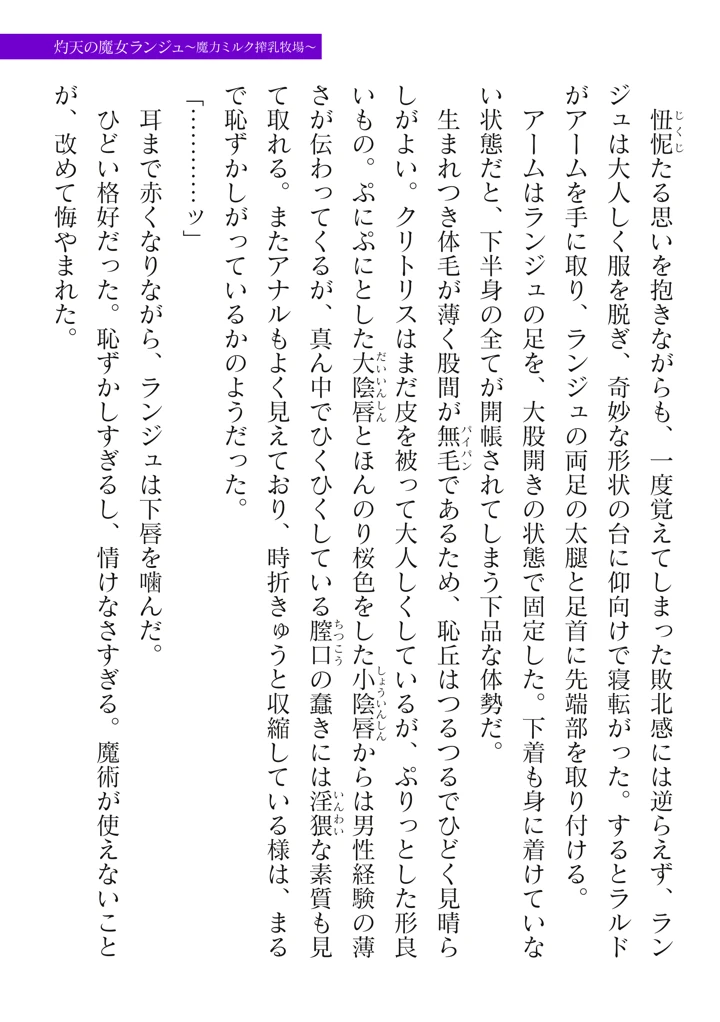 灼天の魔女ランジュ～魔力ミルク搾乳牧場～
じくじ
忸怩たる思いを抱きながらも、一度覚えてしまった敗北感には逆らえず、ラン
ジュは大人しく服を脱ぎ、奇妙な形状の台に仰向けで寝転がった。するとラルド
がアームを手に取り、ランジュの両足の太腿と足首に先端部を取り付ける。
アームはランジュの足を、大股開きの状態で固定した。下着も身に着けていな
い状態だと、下半身の全てが開帳されてしまう下品な体勢だ。
パイパン
生まれつき体毛が薄く股間が無毛であるため、恥丘はつるつるでひどく見晴ら
しがよい。クリトリスはまだ皮を被って大人しくしているが、ぷりっとした形良
だいいんしん
しょういんしん
いもの。ぷにぷにとした大陰唇とほんのり桜色をした小陰唇からは男性経験の薄
ちつこう
いんわい
さが伝わってくるが、真ん中でひくひくしている膣口の蠢きには淫猥な素質も見
て取れる。またアナルもよく見えており、時折きゅうと収縮している様は、まる
で恥ずかしがっているかのようだった。
「…………ッ」
耳まで赤くなりながら、ランジュは下唇を噛んだ。
ひどい格好だった。恥ずかしすぎるし、情けなさすぎる。魔術が使えないこと
が、改めて悔やまれた。